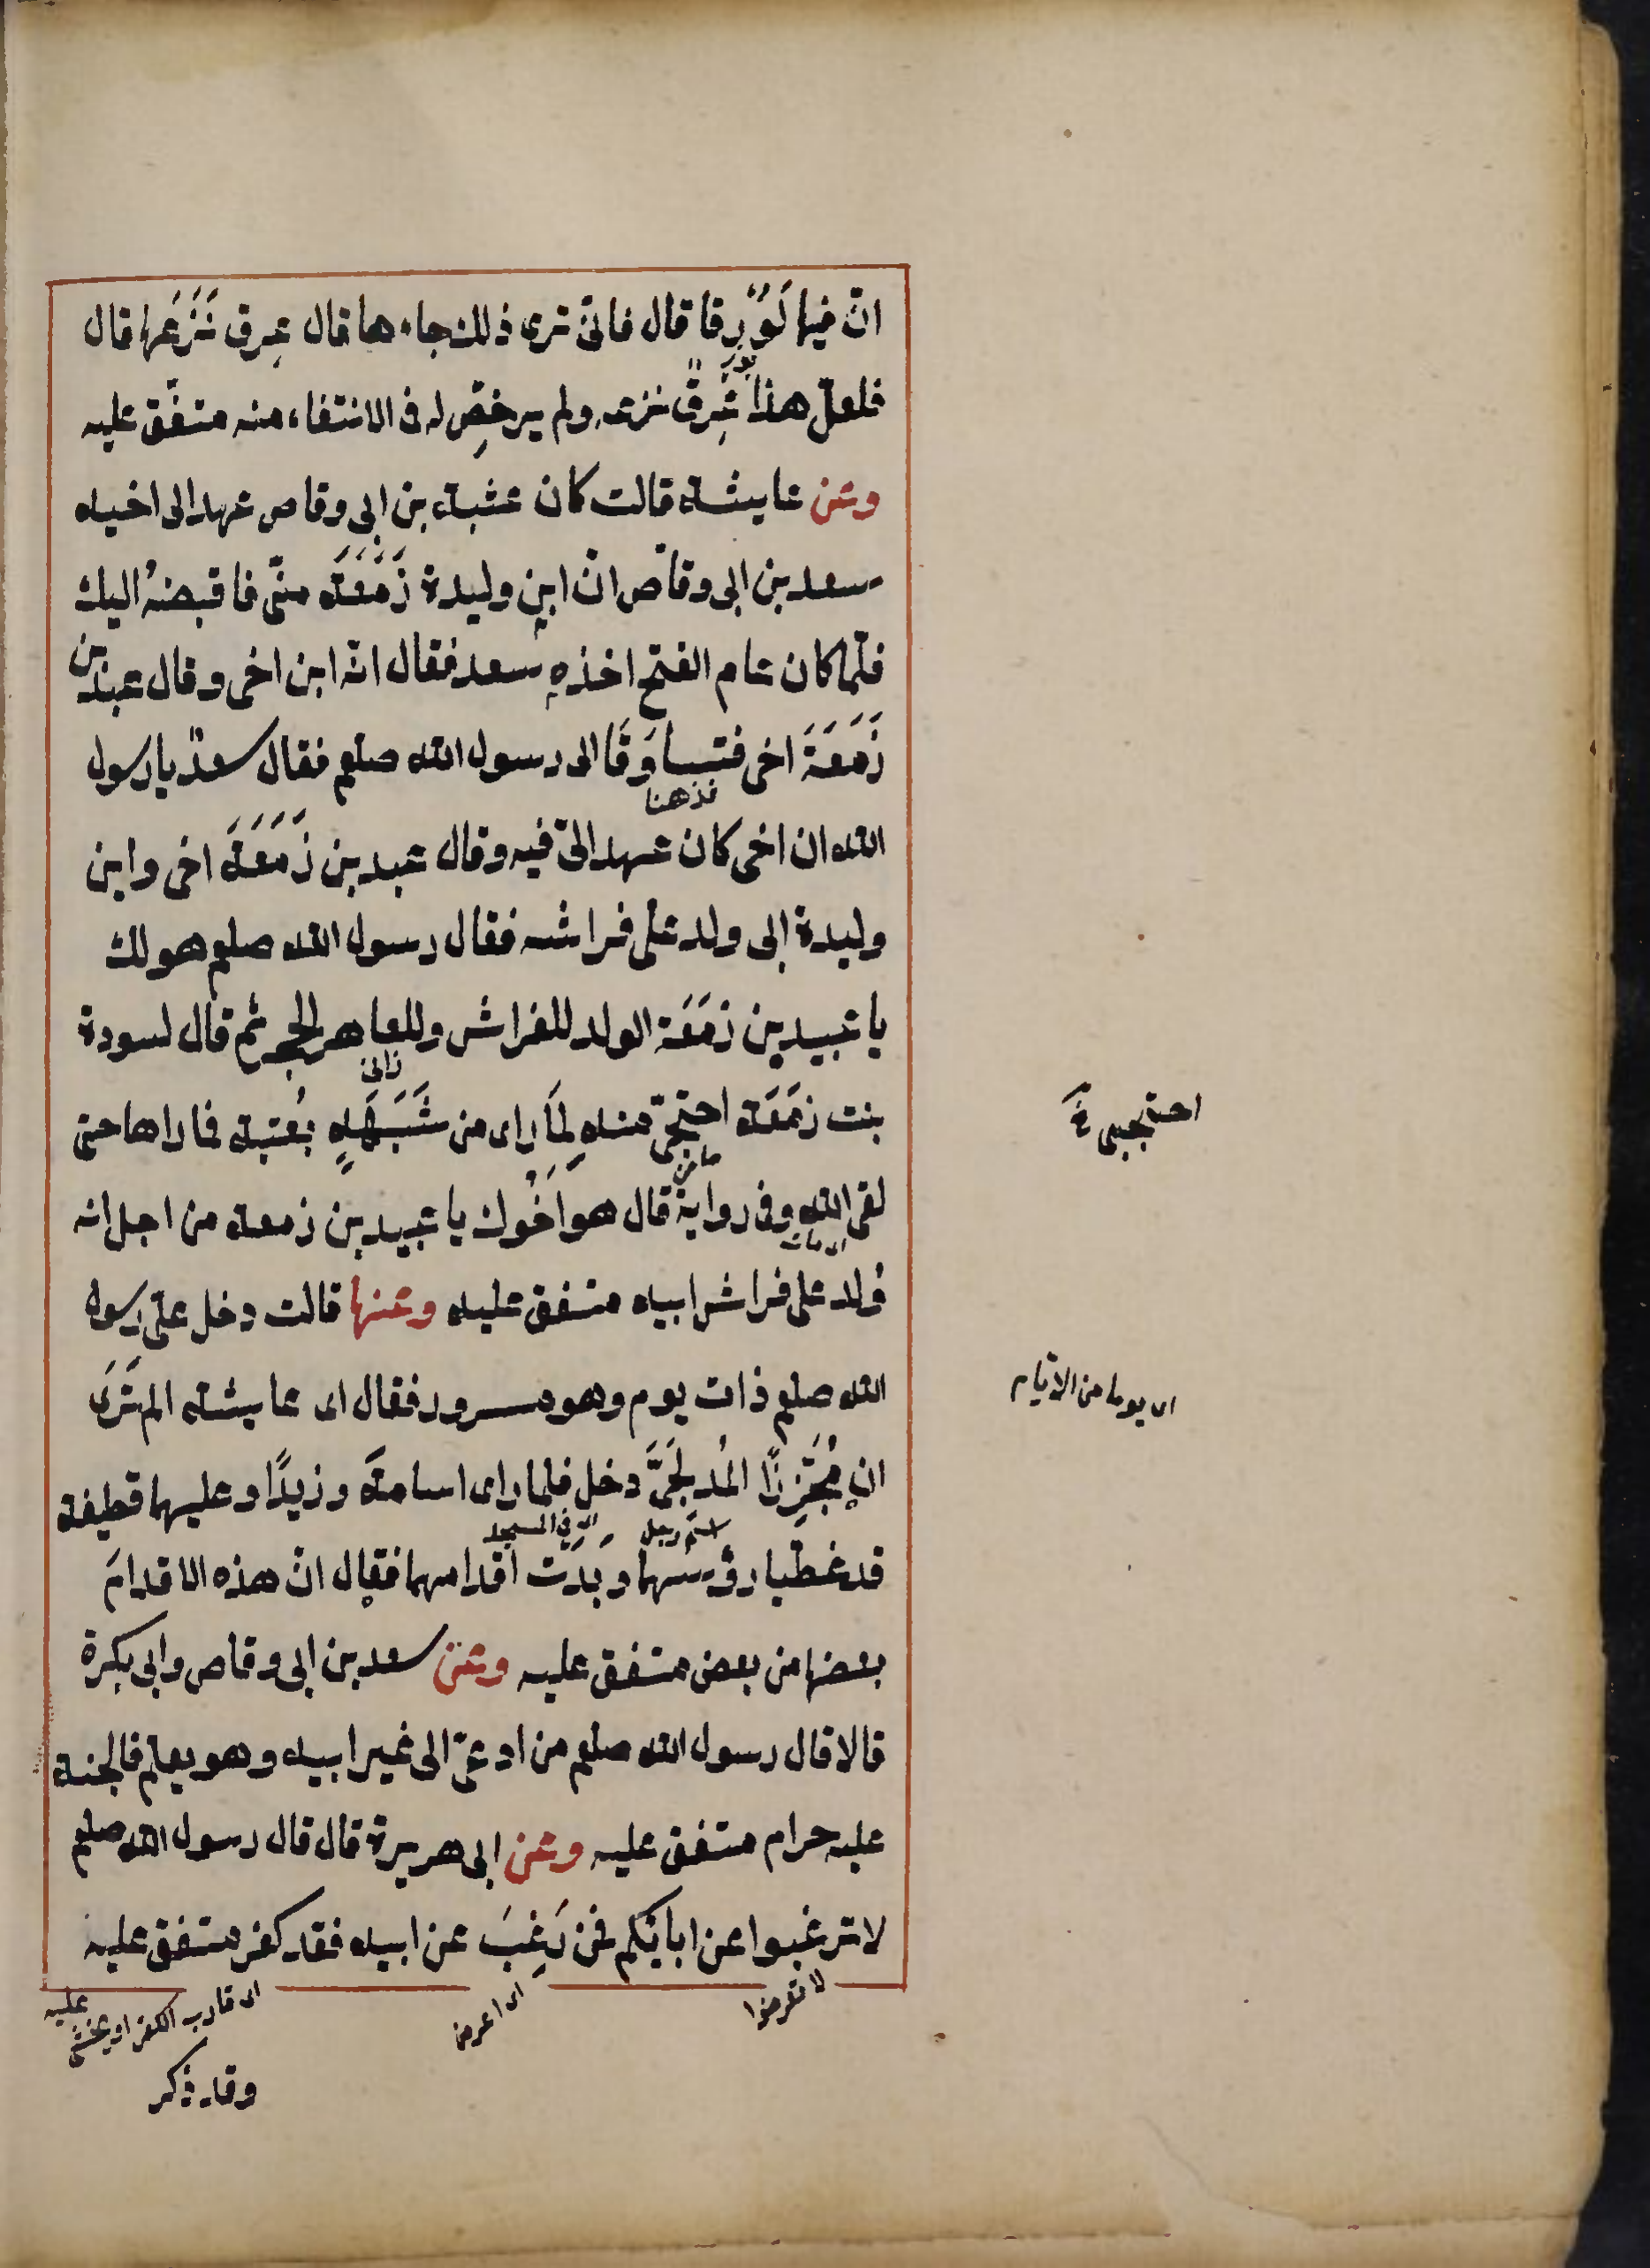 انّ فيها لَوُرْقا قال فانّى ترى ذلك جاءها قال عِرق نَزَعَها قال
فلعلّ هذا عِرقٌ نزعه ولم يرخّص له فى الانتفاء منه متفّق عليه
وعن عايشة قالت كان عتبة بن ابى وقاص عهد الى اخيه
سعد بن ابى وقاص انّ ابن وليدة زَمَعَة منّى فاقبضهُ اليك
فلمّا كان عام الفتح اخذه سعد فقال انّه ابن اخى وقال عبد بن
زَمَعَةَ اخى فتساوَقَا الى رسول الله صلعم فقال سعدٌ يا رسول
فذهبا
الله ان اخى كان عهد الىّ فيه وقال عبد بن زَمَعَةَ اخى وابن
وليدة ابى ولد على فراشه فقال رسول الله صلعم هو لك
يا عبيد بن زمَعَة الولد للفراش وللعاهر الحجر ثم قال لسودة
زانى
بنت زمَعَة احتجبى منه لِمَا راى من شَبَهَهِ بعُتبة فما راها حتى
لقى الله وفى رواية قال هو اخُوك يا عبيد بن زمعة من اجل انه
اى مات
وُلد على فراش ابيه متفق عليه وعنها قالت دخل علىّ رسول
الله صلعم ذات يوم وهو مسرور فقال اى عايشة الم تَرَىَ
ان مُجَزِزًا المُدلَجَىَّ دخل فلما راى اسامة وزيدًا وعليهما قطيفة
اسم رجل
اى فى المسجد
قد غطّيا رؤسهما وبَدَت اقدامهما فقال انّ هذه الاقدامَ
بعضها من بعض متفق عليه وعن سعد بن ابى وقاص وابى بكرة
قالا قال رسول الله صلعم من ادعىّ الى غير ابيه وهو يعلم فالجنة
عليه حرام متفق عليه وعن ابى هريرة قال قال رسول الله صلعم
لا ترغبوا عن ابائكم فمن رَغِبَ عن ابيه فقد كفر متفق عليه
لا تعرضوا
اى اعرض
اى قارب الكفر او يخشى عليه
وقد ذكر
احتجبى خ
اى يوما من الايّام